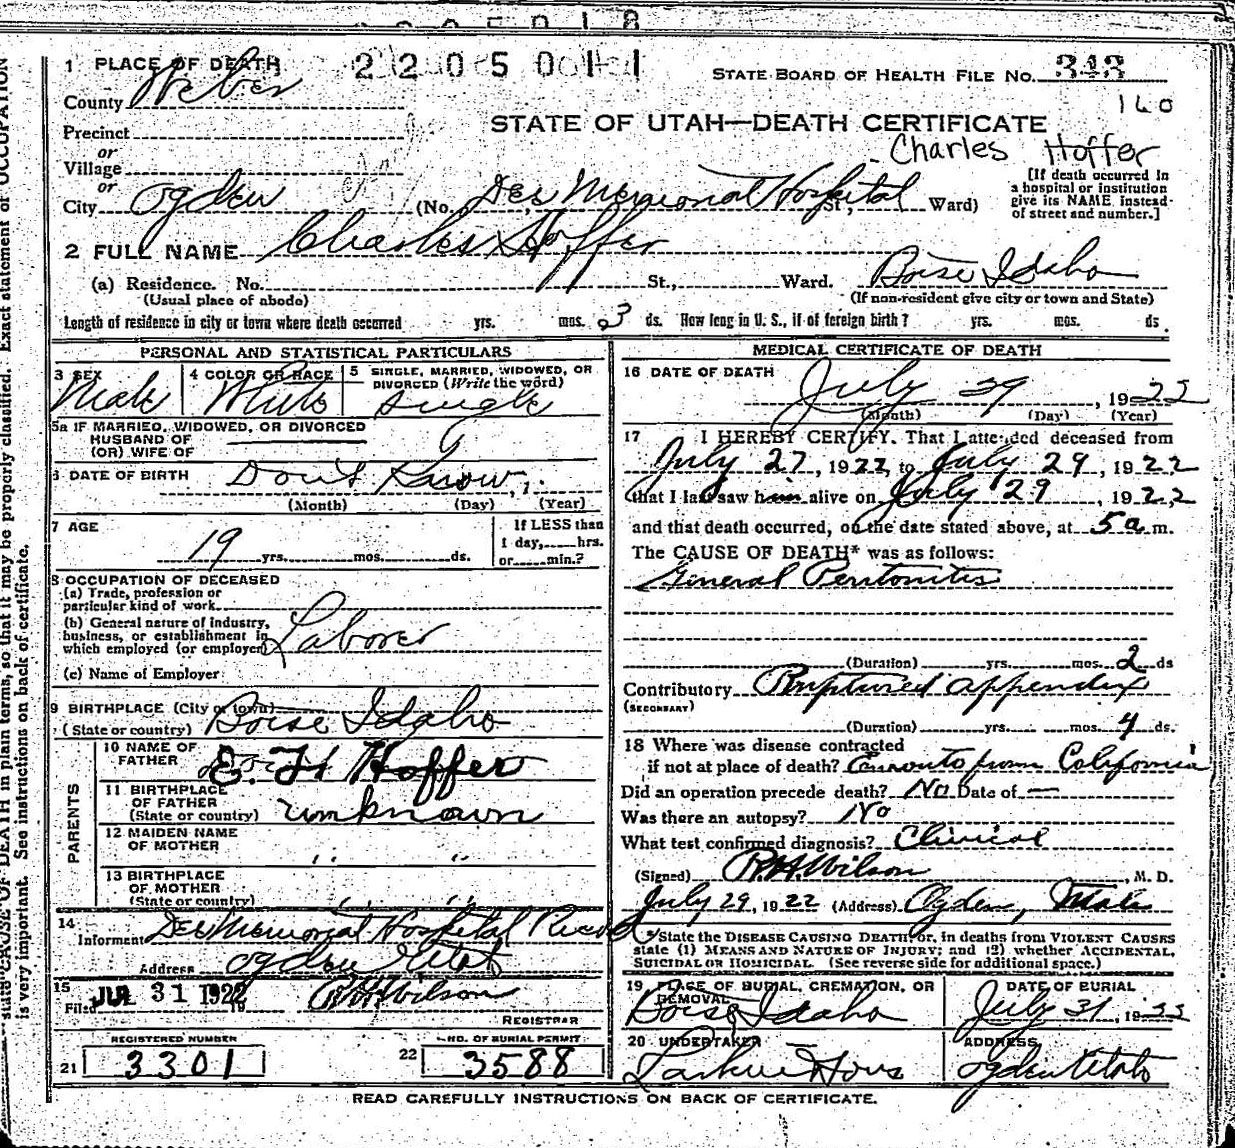 2205011
1 PLACE OF DEATH
STATE BOARD OF HEALTH FILE No. 343
County Weber
160
Precinct
STATE OF UTAH—DEATH CERTIFICATE
or
Village
Charles Hoffer
or
City Ogden (No. Dee Memorial Hospital St., Ward)
[If death occurred in
a hospital or institution
give its NAME instead
of street and number.]
2 FULL NAME Charles Hoffer
(a) Residence. No. St., Ward. Boise Idaho
(Usual place of abode) (If non-resident give city or town and State)
Length of residence in city or town where death occurred yrs. mos. 3 ds. How long in U. S., if of foreign birth? yrs. mos. ds.
PERSONAL AND STATISTICAL PARTICULARS
3 SEX 4 COLOR OR RACE 5 SINGLE, MARRIED, WIDOWED, OR
DIVORCED (Write the word)
Male White Single
5a IF MARRIED, WIDOWED, OR DIVORCED
HUSBAND OF
(OR) WIFE OF
6 DATE OF BIRTH Don't Know, 1
(Month) (Day) (Year)
7 AGE If LESS than
1 day, hrs.
19 yrs. mos. ds. or min.?
8 OCCUPATION OF DECEASED
(a) Trade, profession or
particular kind of work
(b) General nature of industry,
business, or establishment in
which employed (or employer) Laborer
(c) Name of Employer
9 BIRTHPLACE (City or town)
(State or country) Boise Idaho
PARENTS
10 NAME OF
FATHER E. H Hoffer
11 BIRTHPLACE
OF FATHER
(State or country) unknown
12 MAIDEN NAME
OF MOTHER " "
13 BIRTHPLACE
OF MOTHER
(State or country) " "
14
Informant Dee Memorial Hospital Record
Address Ogden Utah
15
Filed JUL 31 1922 R H Wilson
REGISTRAR
REGISTERED NUMBER NO. OF BURIAL PERMIT
21 3301 22 3588
MEDICAL CERTIFICATE OF DEATH
16 DATE OF DEATH
July 29, 1922
(Month) (Day) (Year)
17 I HEREBY CERTIFY, That I attended deceased from
July 27, 1922, to July 29, 1922
that I last saw him alive on July 29, 1922
and that death occurred, on the date stated above, at 5 a m.
The CAUSE OF DEATH* was as follows:
General Peritonitis
(Duration) yrs. mos. 2 ds
Contributory Ruptured appendix
(SECONDARY)
(Duration) yrs. mos. 4 ds.
18 Where was disease contracted
if not at place of death? Enroute from California
Did an operation precede death? No Date of —
Was there an autopsy? No
What test confirmed diagnosis? Clinical
(Signed) R.H. Wilson, M. D.
July 29, 1922 (Address) Ogden, Utah
*State the DISEASE CAUSING DEATH, or, in deaths from VIOLENT CAUSES
state (1) MEANS AND NATURE OF INJURY; and (2) whether ACCIDENTAL,
SUICIDAL OR HOMICIDAL. (See reverse side for additional space.)
19 PLACE OF BURIAL, CREMATION, OR
REMOVAL DATE OF BURIAL
Boise, Idaho July 31, 1922
20 UNDERTAKER ADDRESS
Larkin & Sons Ogden Utah
READ CAREFULLY INSTRUCTIONS ON BACK OF CERTIFICATE.
state CAUSE OF DEATH in plain terms, so that it may be properly classified. Exact statement of OCCUPATION
is very important. See instructions on back of certificate.